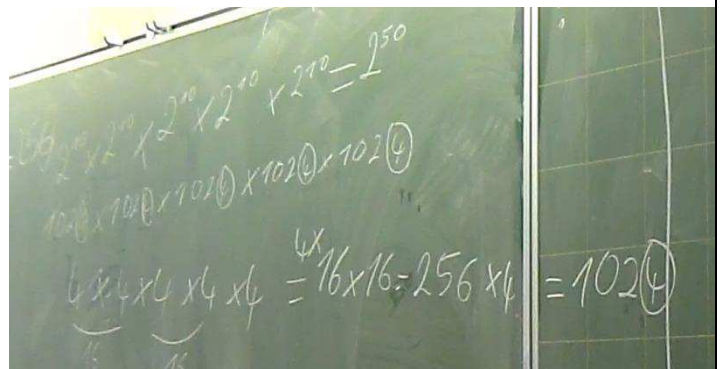 2¹⁰ × 2¹⁰ × 2¹⁰ × 2¹⁰ × 2¹⁰ = 2⁵⁰
1024 × 1024 × 1024 × 1024 × 1024
4 × 4 × 4 × 4 × 4 = 4× 16 × 16 = 256 × 4 = 1024
16 16